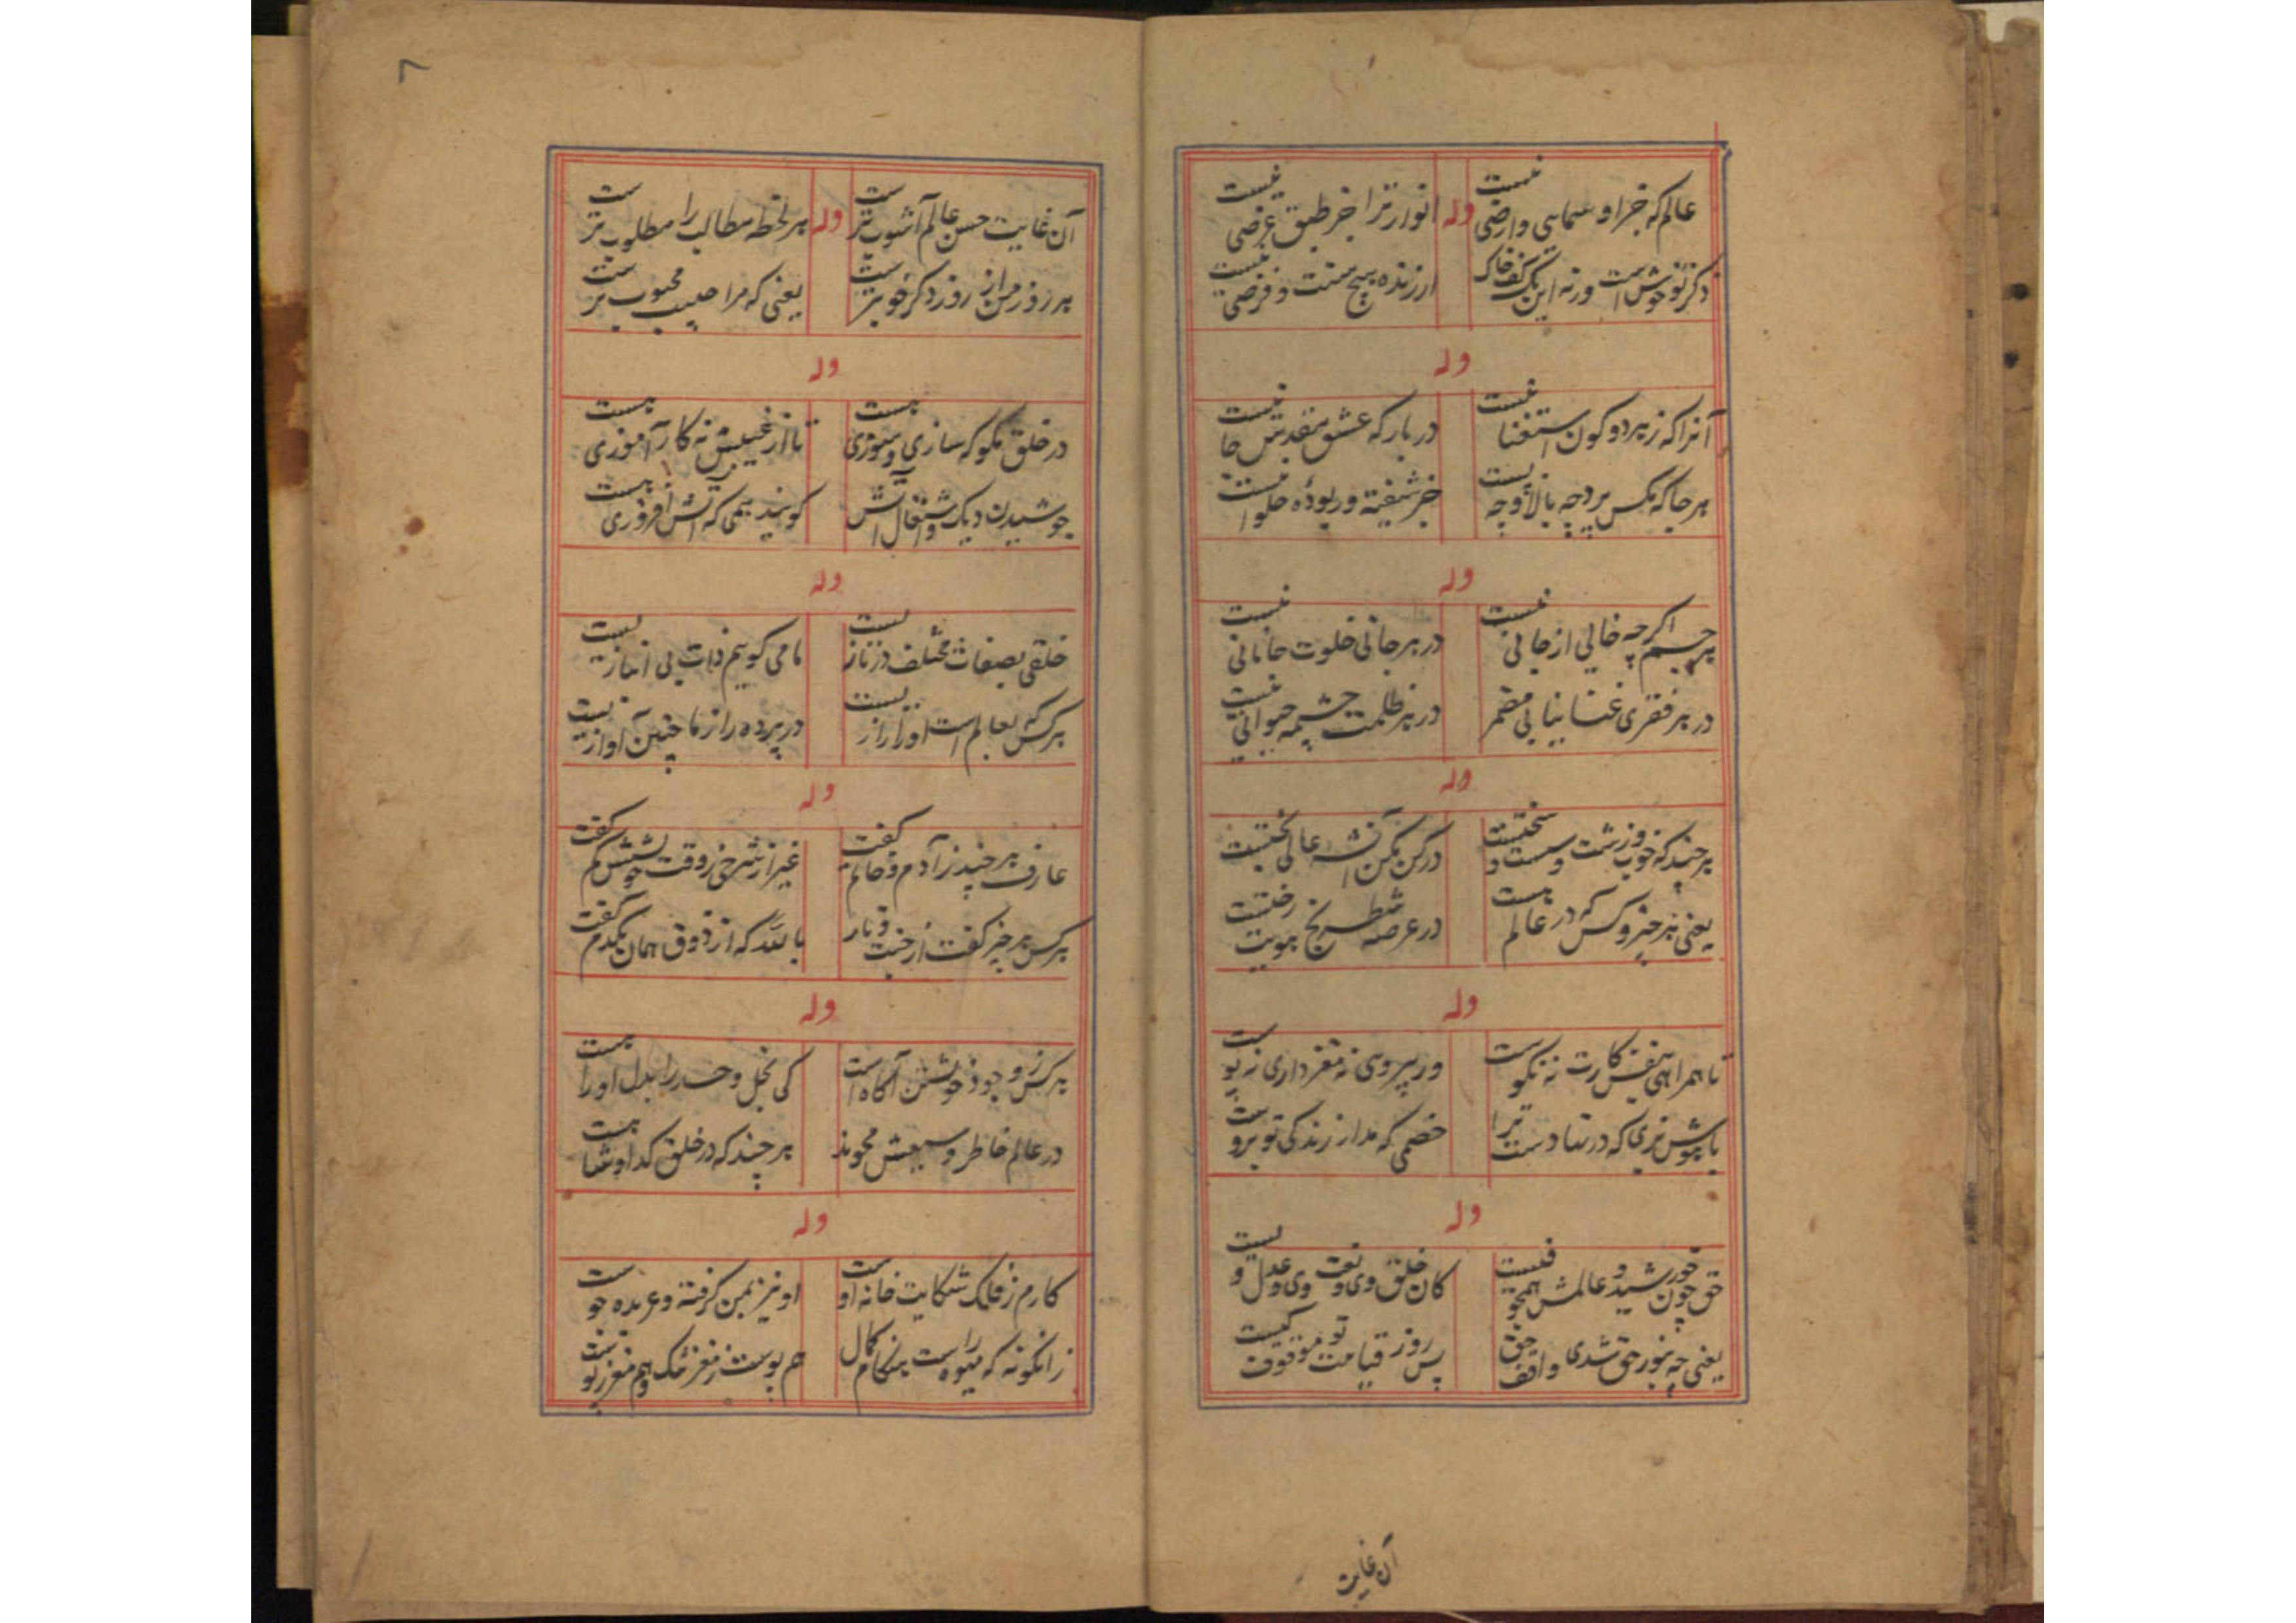 عالم که جز او سماسی و ارضی نیست
وله
انوار ترا جز طبق عرضی نیست
ذکر تو خوش است ورنه این یک کف خاک
ارزنده هیچ سنت و فرضی نیست
وله
آنرا که ز هر دو کون استغنا نیست
در بارکه عشق مقدسش جا نیست
هر جا که مکس پرد چه بالا و چه پست
جز شیفته و ربوده حلوا نیست
وله
هر جسم اکرچه خالی از جانی نیست
در هر جانی خلوت جانانی نیست
در هر فقری غنا نیابی مضمر
در هر ظلمت چشمه حیوانی نیست
وله
هر چند که خوب و زشت و سست و سختیست
در کن مکن انشه عالی تختیست
یعنی هر چیز و کس که در عالم هست
در عرصه شطرنج هویت رختیست
وله
تا همراهی بنفس کارت نه نکوست
ور پیروی نه مغز داری نه پوست
با هوش نزی که در تنا دست ترا
خصمی که مدار زندکی تو بروست
وله
حق چون خورشید و عالمش همچو فیست
کان خلق وی و نعت وی و عدل ویست
یعنی چه بنور حق شدی واقف حق
پس روز قیامت تو موقوف کیست
آن غایت
۷
آن غایت حسن عالم آشوب ترست
وله
هر لحظه مطالب را مطلوب ترست
هر روز من از روز دکر خوبترست
یعنی که مرا حبیب محبوب ترست
وله
در خلق مکو که سازی و سوزی هست
تا از غیبش نه کار آموزی هست
جوشیدن دیک و اشتغال آتش
کویند همی که آتش افروزی هست
وله
خلقی بصفات مختلف در نازیست
ما می کوییم ذات بی انبازیست
هر کس که بعالم است او را رازیست
در پرده راز ما چنین آوازیست
وله
عارف هر چند ز آدم و خاتم کفت
غیر از شرحی ز وقت خویشش کم کفت
هر کس هر چیز کفت از جنت و نار
بالله که از ذوق همان یکدم کفت
وله
هر کس ز وجود خویشتن آکاه است
کی بخل و حسد را بدل او راهست
در عالم خاطر وسیعش محوند
هر چند که در خلق کدا و شاهست
وله
کارم ز فلک شکایت خانه اوست
او نیز بمن کرفته و عربده جوست
زانکونه که میوه راست هنکام کمال
هم پوست ز مغز تنک و هم مغز ز پوست